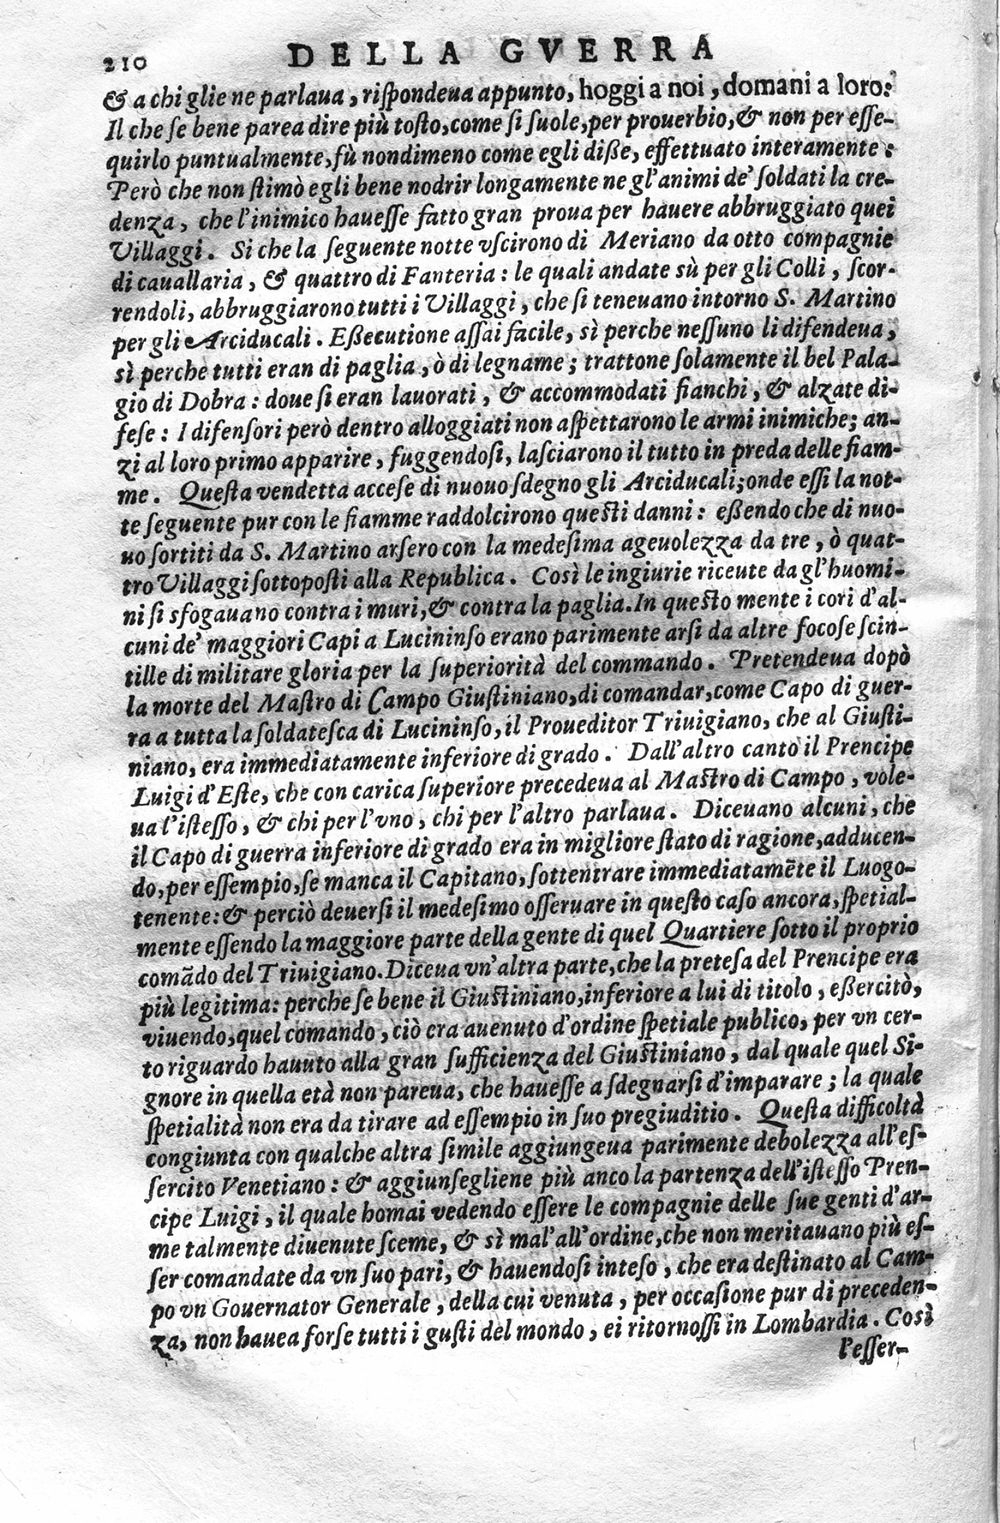 210 DELLA GVERRA
& a chi glie ne parlaua, rispondeua appunto, hoggi a noi, domani a loro:
Il che se bene parea dire più tosto, come si suole, per prouerbio, & non per esse-
quirlo puntualmente, fù nondimeno come egli disse, effettuato interamente:
Però che non stimò egli bene nodrir longamente ne gl'animi de' soldati la cre-
denza, che l'inimico hauesse fatto gran proua per hauere abbruggiato quei
Villaggi. Si che la seguente notte vscirono di Meriano da otto compagnie
di cauallaria, & quattro di Fanteria: le quali andate sù per gli Colli, scor-
rendoli, abbruggiarono tutti i Villaggi, che si teneuano intorno S. Martino
per gli Arciducali. Essecutione assai facile, sì perche nessuno li difendeua,
sì perche tutti eran di paglia, ò di legname; trattone solamente il bel Pala-
gio di Dobra: doue si eran lauorati, & accommodati fianchi, & alzate di-
fese: I difensori però dentro alloggiati non aspettarono le armi inimiche; an-
zi al loro primo apparire, fuggendosi, lasciarono il tutto in preda delle fiam-
me. Questa vendetta accese di nuouo sdegno gli Arciducali; onde essi la not-
te seguente pur con le fiamme raddolcirono questi danni: essendo che di nuo-
uo sortiti da S. Martino arsero con la medesima ageuolezza da tre, ò quat-
tro Villaggi sottoposti alla Republica. Così le ingiurie riceute da gl'huomi-
ni si sfogauano contra i muri, & contra la paglia. In questo mente i cori d'al-
cuni de' maggiori Capi a Lucininso erano parimente arsi da altre focose scin-
tille di militare gloria per la superiorità del commando. Pretendeua dopò
la morte del Mastro di Campo Giustiniano, di comandar, come Capo di guer-
ra a tutta la soldatesca di Lucininso, il Proueditor Triuigiano, che al Giusti-
niano, era immediatamente inferiore di grado. Dall'altro canto il Prencipe
Luigi d'Este, che con carica superiore precedeua al Mastro di Campo, vole-
ua l'istesso, & chi per l'vno, chi per l'altro parlaua. Diceuano alcuni, che
il Capo di guerra inferiore di grado era in migliore stato di ragione, adducen-
do, per essempio, se manca il Capitano, sottentrare immediatamẽte il Luogo-
tenente: & perciò deuersi il medesimo osseruare in questo caso ancora, spetial-
mente essendo la maggiore parte della gente di quel Quartiere sotto il proprio
comãdo del Triuigiano. Diceua vn'altra parte, che la pretesa del Prencipe era
più legitima: perche se bene il Giustiniano, inferiore a lui di titolo, essercitò,
viuendo, quel comando, ciò era auenuto d'ordine spetiale publico, per vn cer-
to riguardo hauuto alla gran sufficienza del Giustiniano, dal quale quel Si-
gnore in quella età non pareua, che hauesse a sdegnarsi d'imparare; la quale
spetialità non era da tirare ad essempio in suo pregiuditio. Questa difficoltà
congiunta con qualche altra simile aggiungeua parimente debolezza all'es-
sercito Venetiano: & aggiunsegliene più anco la partenza dell'istesso Pren-
cipe Luigi, il quale homai vedendo essere le compagnie delle sue genti d'ar-
me talmente diuenute sceme, & sì mal'all'ordine, che non meritauano più es-
ser comandate da vn suo pari, & hauendosi inteso, che era destinato al Cam-
po vn Gouernator Generale, della cui venuta, per occasione pur di preceden-
za, non hauea forse tutti i gusti del mondo, ei ritornossi in Lombardia. Così
l'esser-